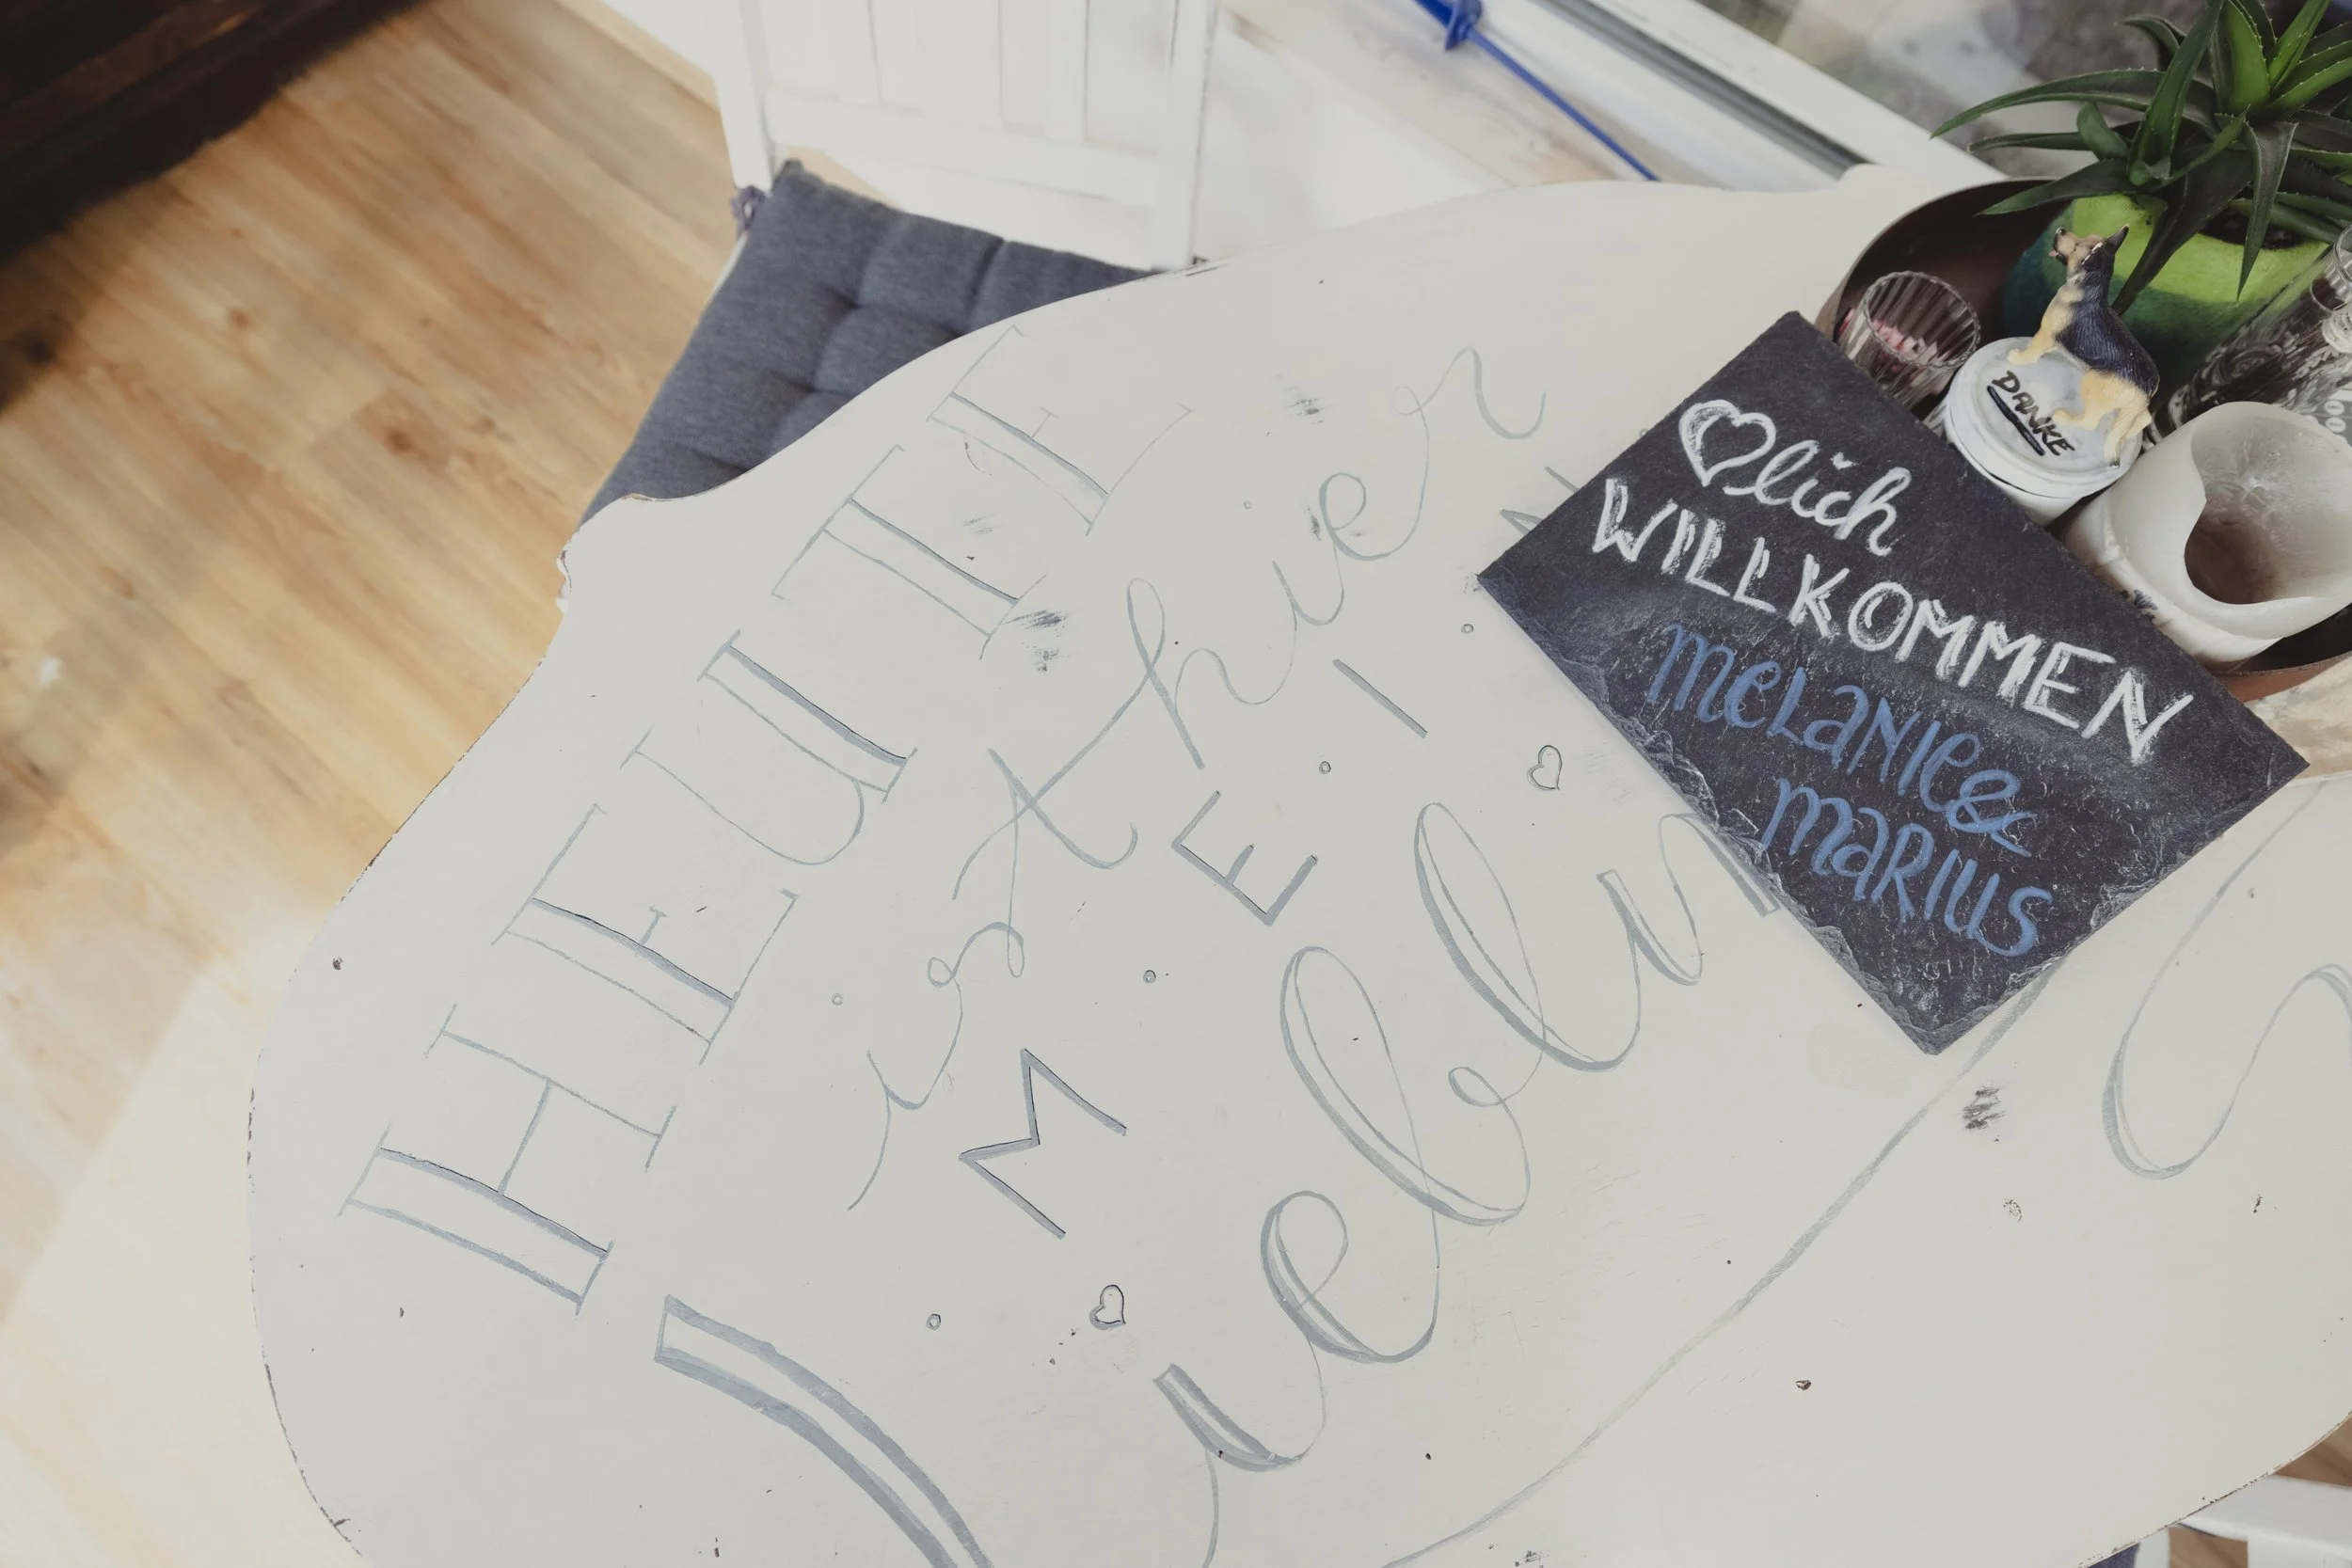 HEUTE
ist hier
MEI
♡lich
WILLKOMMEN
MELANIE &
MARIUS
DANKE